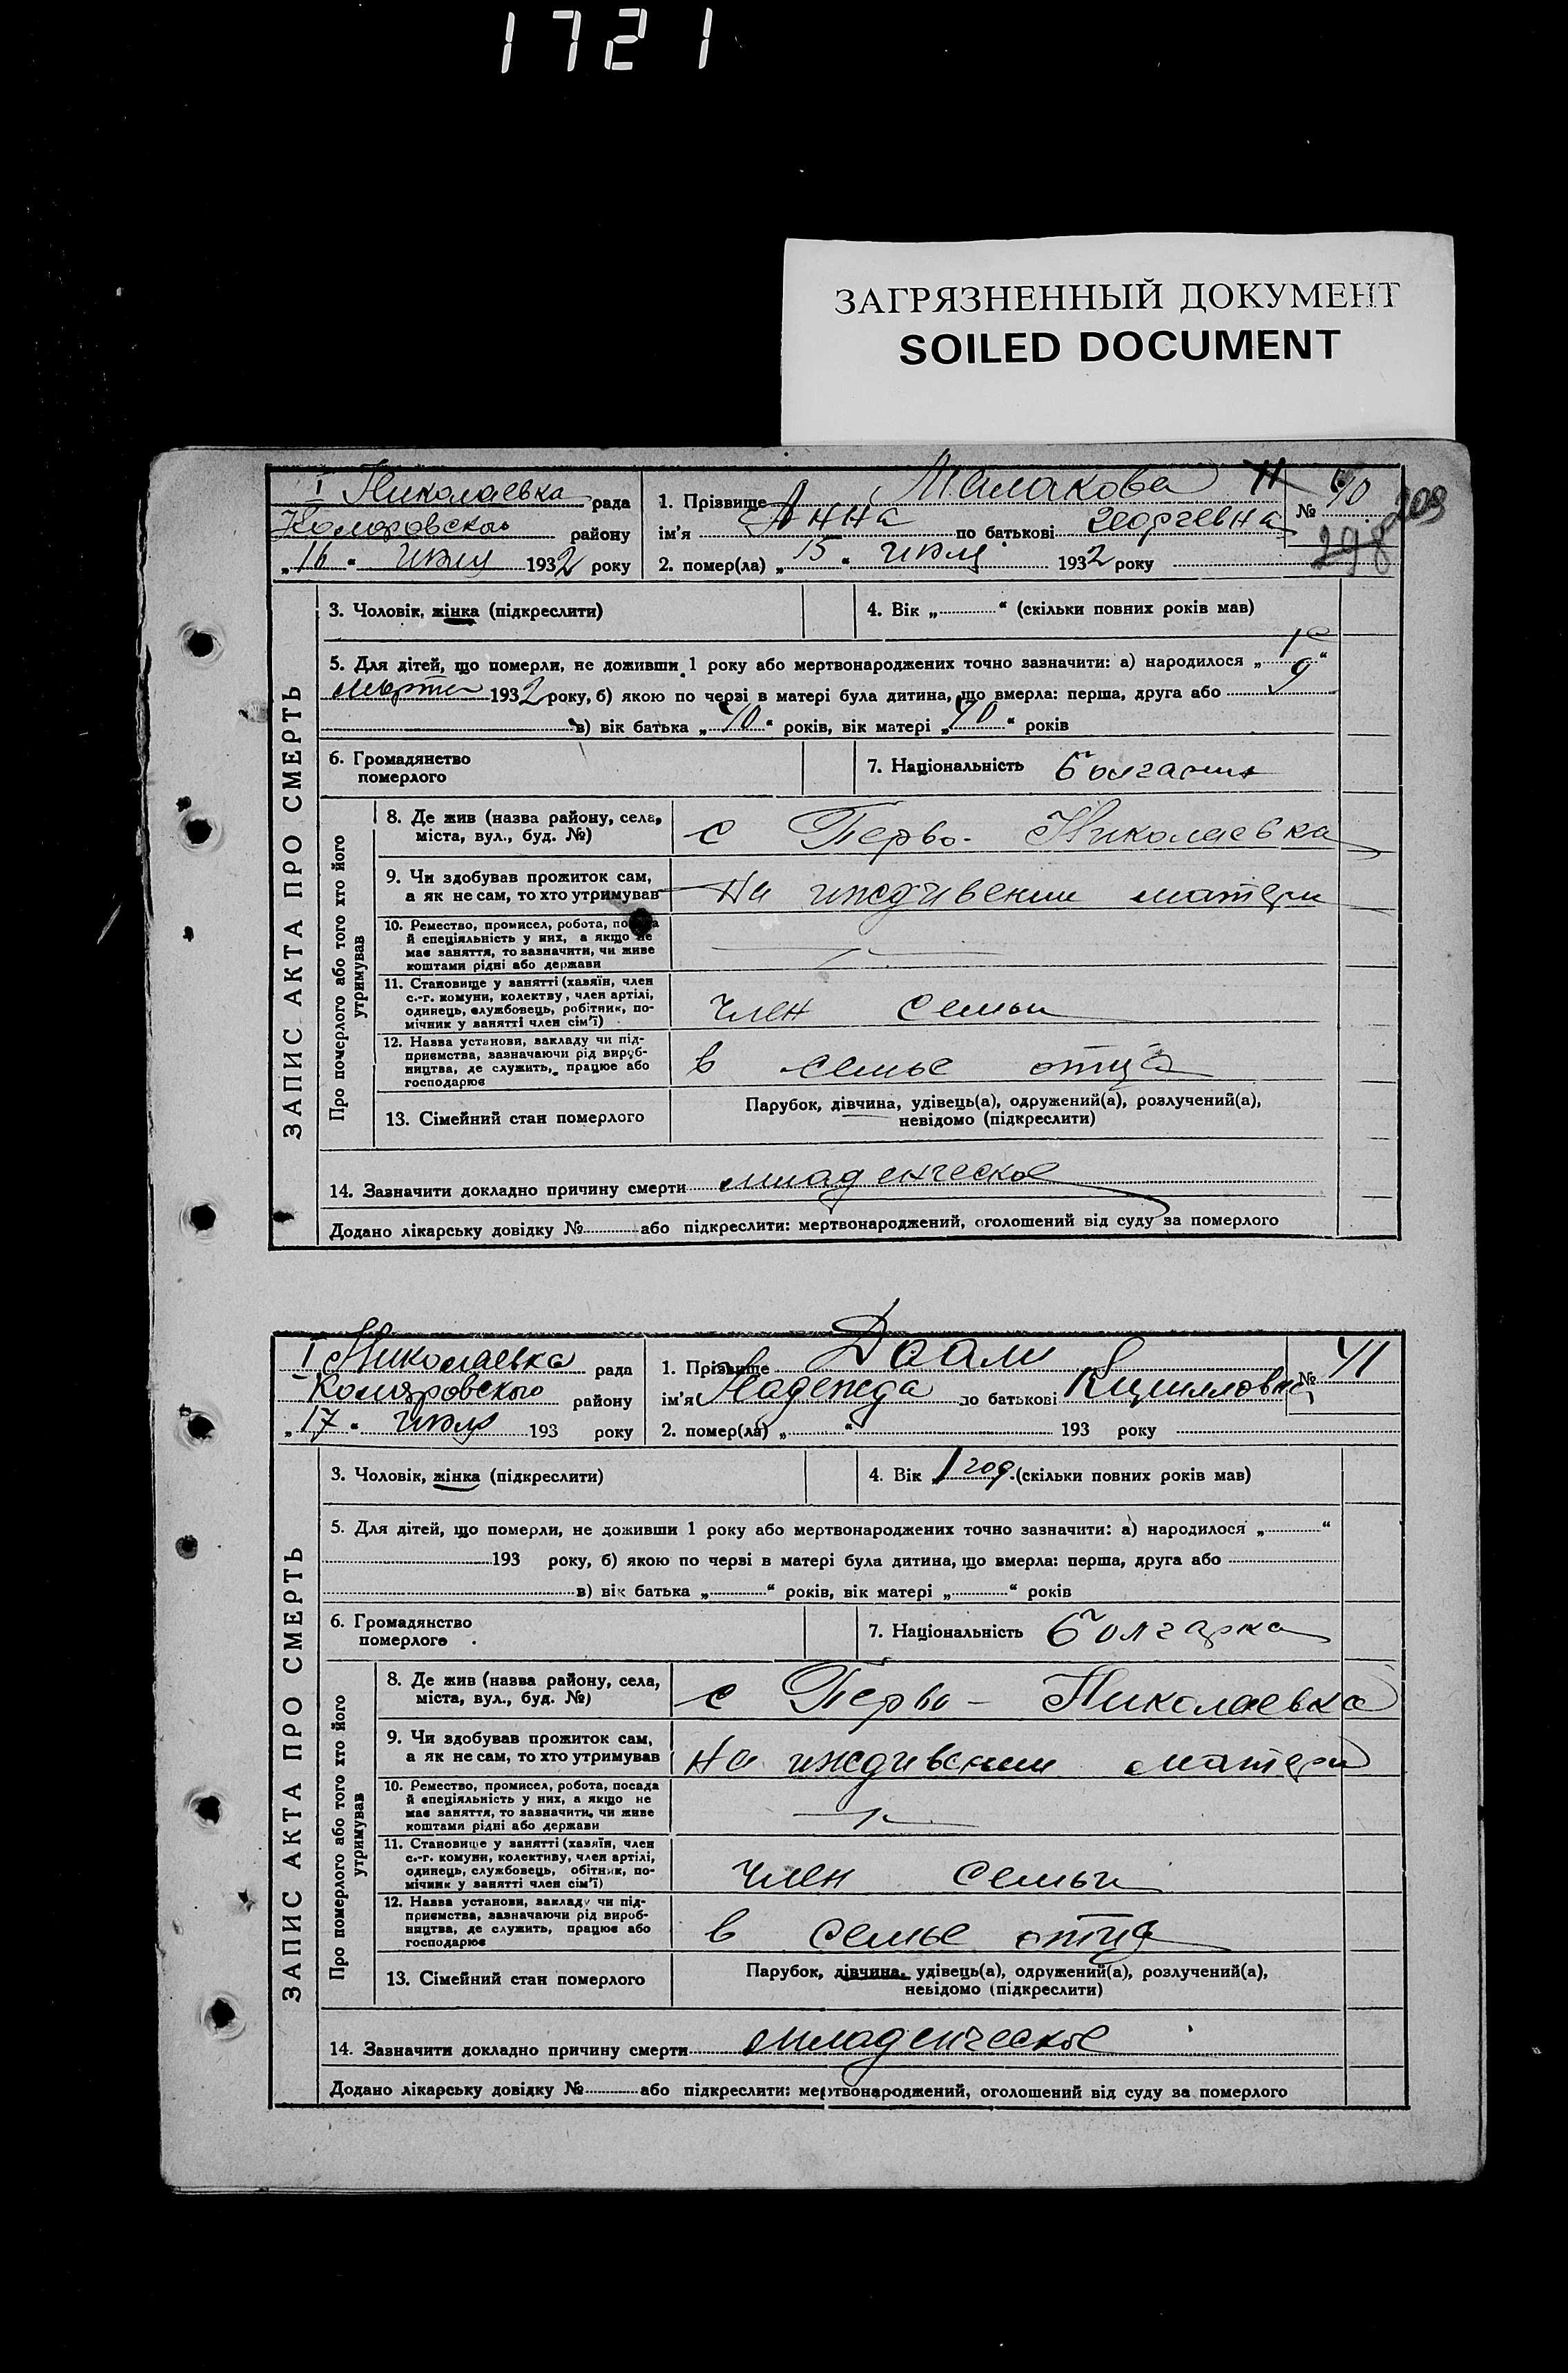 1721
ЗАГРЯЗНЕННЫЙ ДОКУМЕНТ
SOILED DOCUMENT
209
298
ЗАПИС АКТА ПРО СМЕРТЬ
I Николаевка рада
району
„16“ июля 1932 року
1. Прізвище Малакова № 40
ім'я Анна по батькові Георгевна
2. помер(ла) „15“ июля 1932 року
3. Чоловік, жінка (підкреслити)
4. Вік „ “ (скільки повних років мав)
5. Для дітей, що померли, не доживши 1 року або мертвонароджених точно зазначити: а) народилося „1“
марта 1932 року, б) якою по черзі в матері була дитина, що вмерла: перша, друга або 9
в) вік батька „40“ років, вік матері „40“ років
6. Громадянство
померлого
7. Національність
Про померлого або того хто його
утримував
8. Де жив (назва району, села,
міста, вул., буд. №)
с Перво-Николаевка
9. Чи здобував прожиток сам,
а як не сам, то хто утримував
На иждивении матери
10. Ремество, промисел, робота, посада
й спеціяльність у них, а якщо не
має заняття, то зазначити, чи живе
коштами рідні або держави
11. Становище у занятті (хазяїн, член
с.-г. комуни, колектву, член артілі,
одинець, службовець, робітник, по-
мічник у занятті член сім'ї)
член семьи
12. Назва установи, закладу чи під-
приємства, зазначаючи рід вироб-
ництва, де служить, працює або
господарює
в семье отца
13. Сімейний стан померлого
Парубок, дівчина, удівець(а), одружений(а), розлучений(а),
невідомо (підкреслити)
14. Зазначити докладно причину смерти младенческое
Додано лікарську довідку № або підкреслити: мертвонароджений, оголошений від суду за померлого
ЗАПИС АКТА ПРО СМЕРТЬ
I Николаевка рада
Коляровского району
„17“ июля 193 року
1. Прізвище Даали № 41
ім'я Надежда по батькові Кирилловна
2. помер(ла) „ “ 193 року
3. Чоловік, жінка (підкреслити)
4. Вік „1 год. (скільки повних років мав)
5. Для дітей, що померли, не доживши 1 року або мертвонароджених точно зазначити: а) народилося „ “
193 року, б) якою по черзі в матері була дитина, що вмерла: перша, друга або
в) вік батька „ “ років, вік матері „ “ років
6. Громадянство
померлого
7. Національність болгарка
Про померлого або того хто його
утримував
8. Де жив (назва району, села,
міста, вул., буд. №)
с Перво-Николаевка
9. Чи здобував прожиток сам,
а як не сам, то хто утримував
на иждивении матери
10. Ремество, промисел, робота, посада
й спеціяльність у них, а якщо не
має заняття, то зазначити, чи живе
коштами рідні або держави
11. Становище у занятті (хазяїн, член
с.-г. комуни, колективу, член артілі,
одинець, службовець, обітник, по-
мічник у занятті член сім'ї)
член семьи
12. Назва установи, закладу чи під-
приємства, зазначаючи рід вироб-
ництва, де служить, працює або
господарює
в семье отца
13. Сімейний стан померлого
Парубок, дівчина, удівець(а), одружений(а), розлучений(а),
невідомо (підкреслити)
14. Зазначити докладно причину смерти младенческое
Додано лікарську довідку № або підкреслити: мертвонароджений, оголошений від суду за померлого